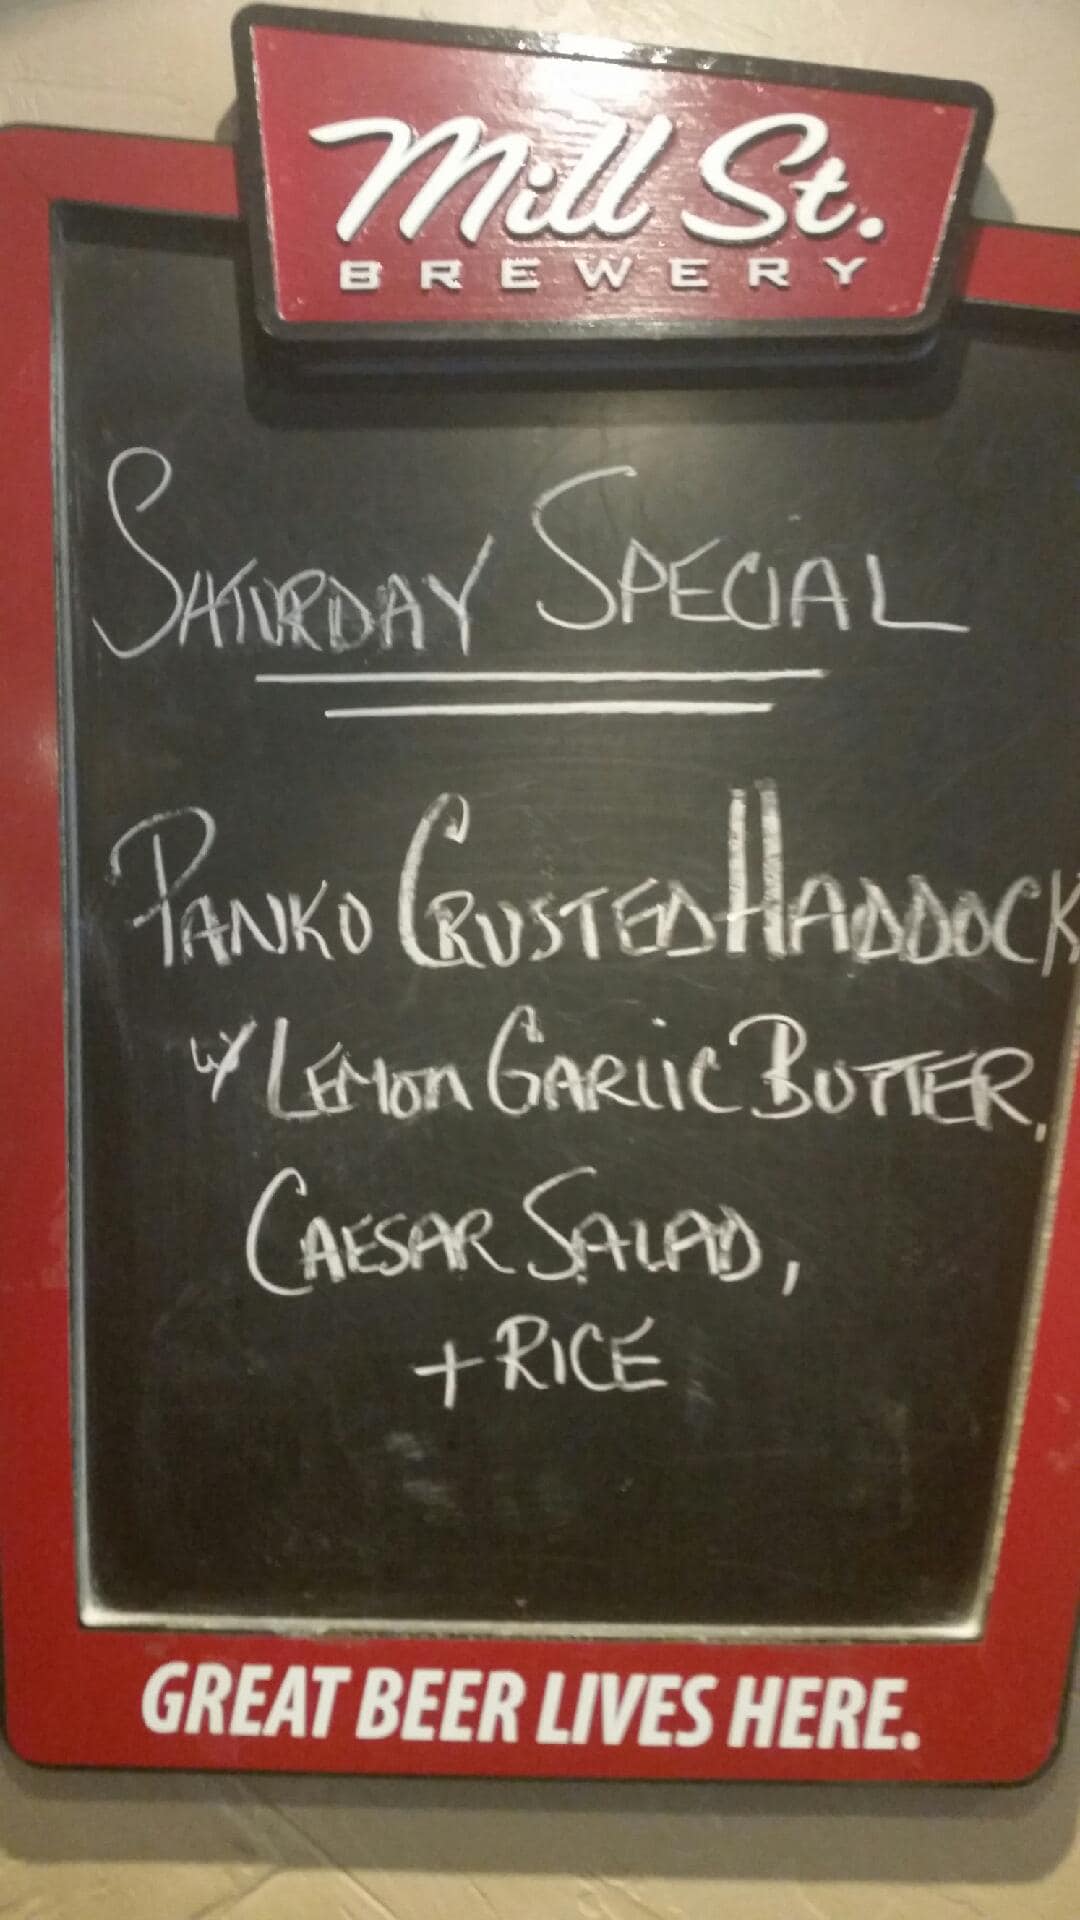 Mill St.
BREWERY
SATURDAY SPECIAL
PANKO CRUSTED HADDOCK
w/ LEMON GARLIC BUTTER,
CAESAR SALAD,
+ RICE
GREAT BEER LIVES HERE.